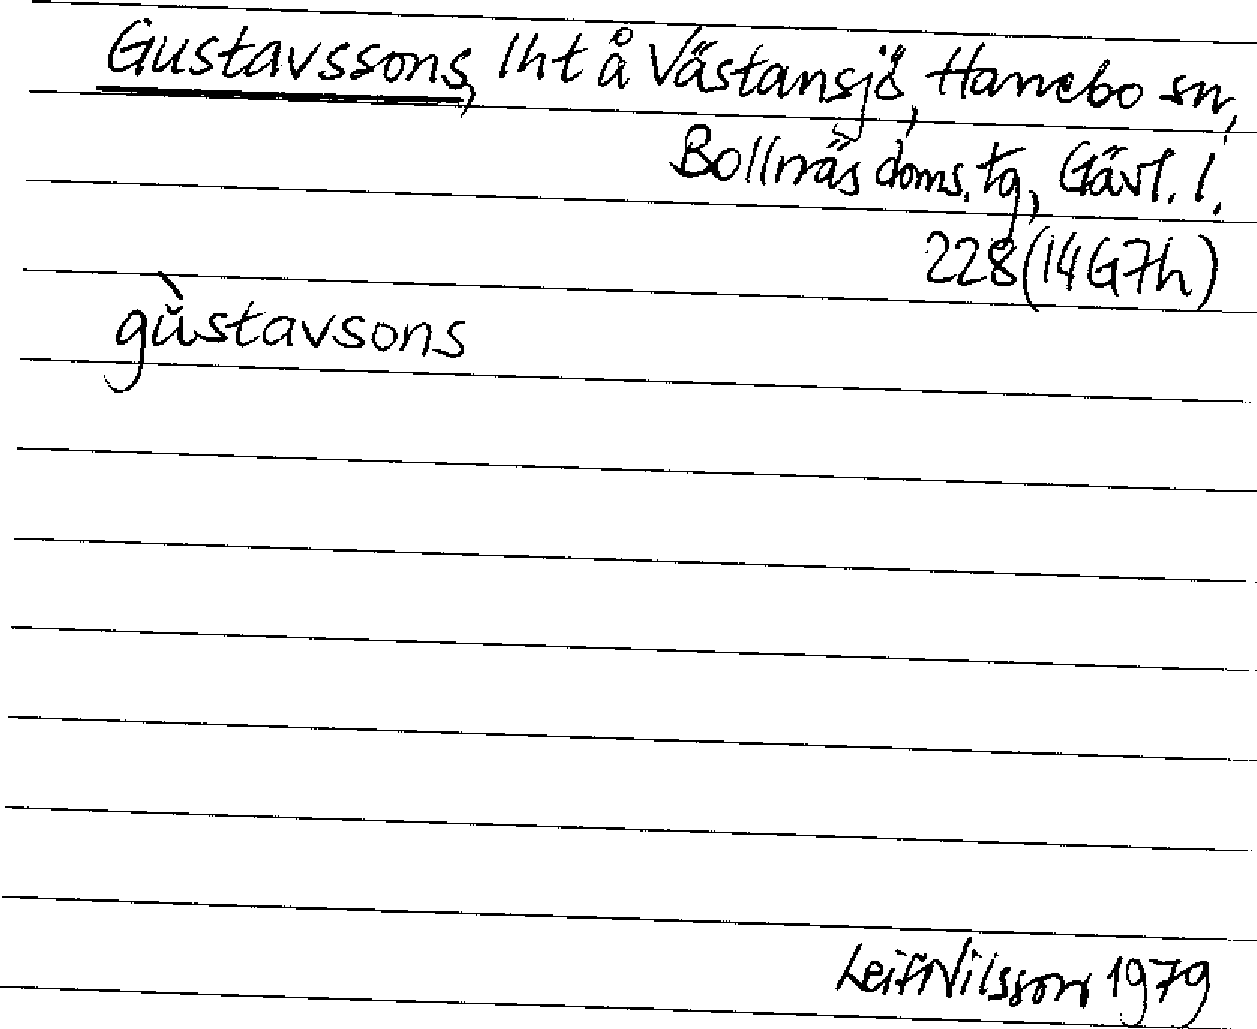 Gustavssons, lht å Västansjö, Hanebo sn,
Bollnäs doms. tg, Gävl. l.
228 (14G7h)
gǜstavsons
Leif Nilsson 1979